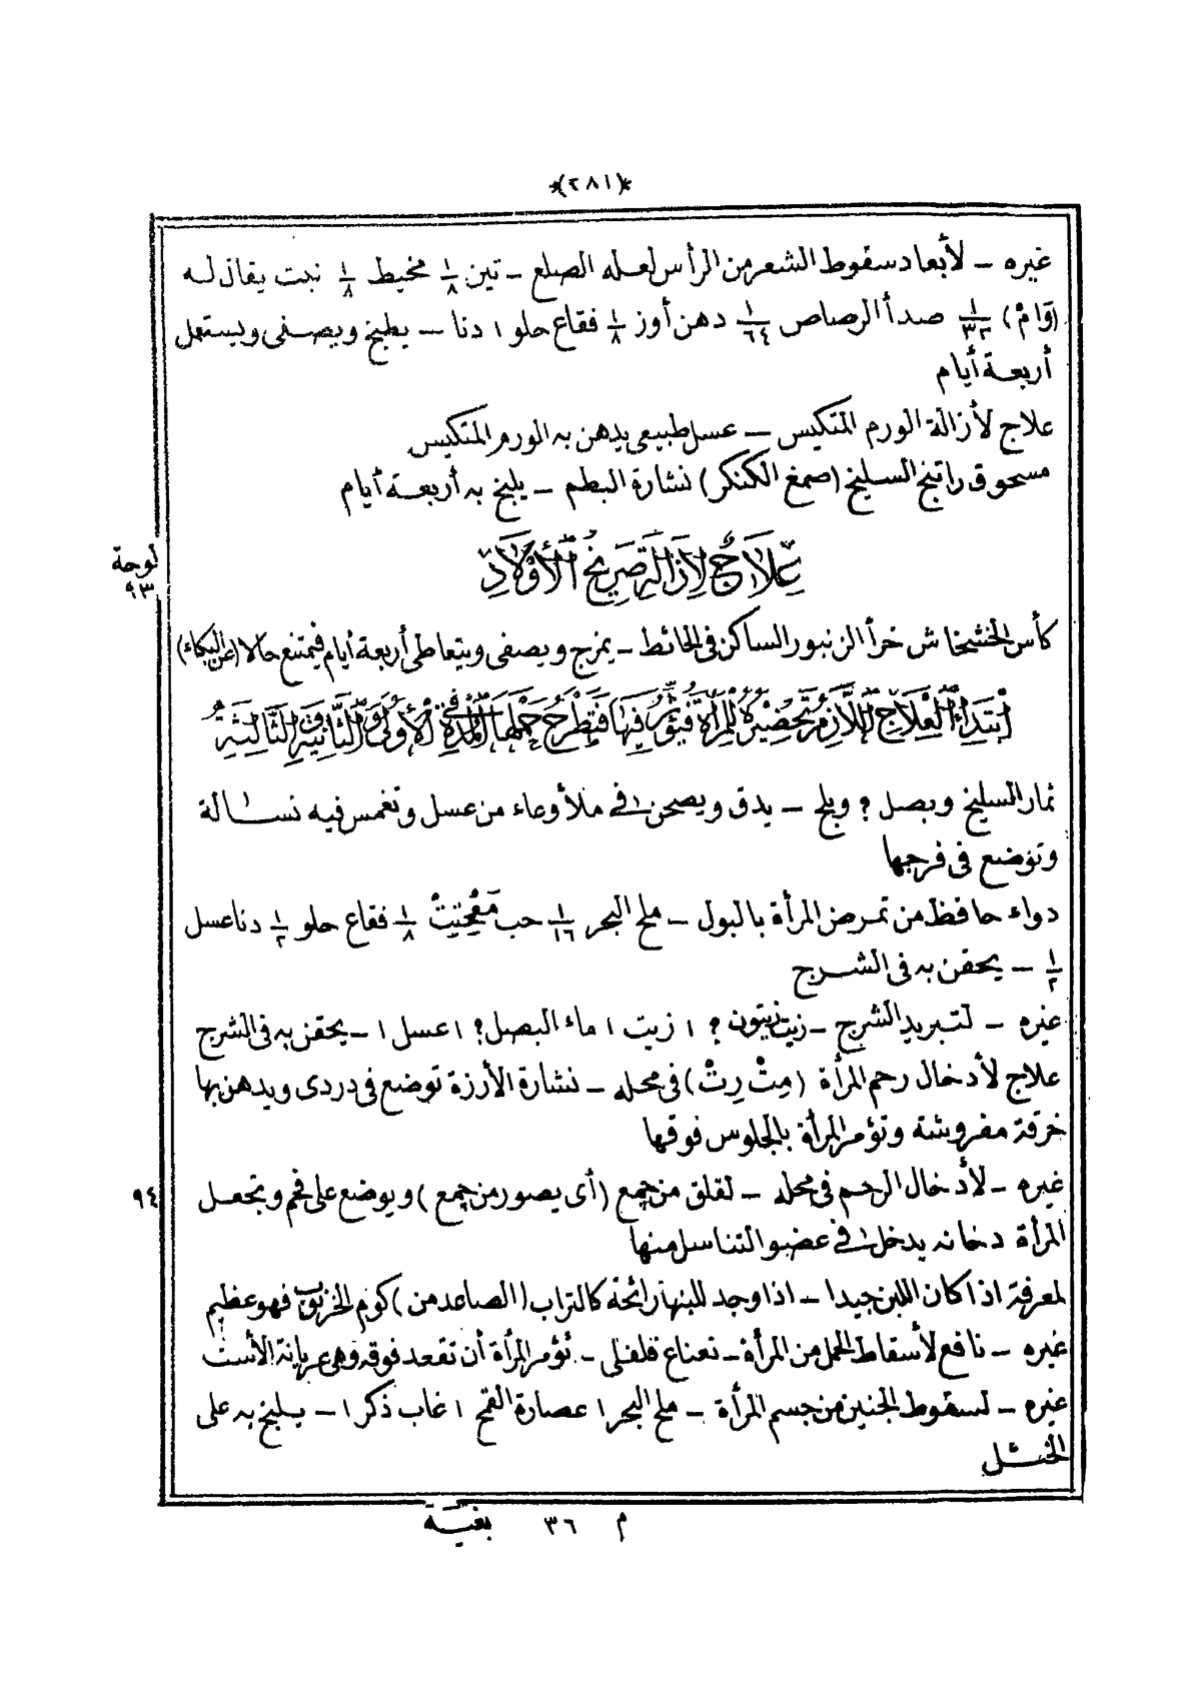 *(٢٨١)*
غيره – لأبعاد سقوط الشعر من الرأس لعله الصلع – تين ١/٨ مخيط ١/٨ نبت يقال له
(قَوَامْ) ١/٣٢ صدأ الرصاص ١/٦٤ دهن أوز ١/٨ فقاع حلو ١ دنا – يطبخ ويصفى ويستعمل
أربعة أيام
علاج لأزالة الورم المتكيس – عسل طبيعى يدهن به الورم المتكيس
مسحوق راتنج السليخ (صمغ الكنكر) نشارة البطم – يلبخ به أربعة أيام
عِلَاجٌ لِإِزَالَةِ تَصْرِيخِ الْأَوْلَادِ
لوحة
٩٣
كأس الخشخاش خرأ الزنبور الساكن فى الحائط – يمزج ويصفى ويتعاطى أربعة أيام فيمتنع حالا (عن البكاء)
اِبْتَدِأُ الْعِلَاجِ اللَّازِمُ تَحْضِيْرُهُ لِلْمَرْأَةِ فَيُؤَثِّرُ فِيْهَا فَتَطْرَحُ حَمْلَهَا فِى الْمُدَّةِ الْأُولَى وَالثَّانِيَةِ وَالثَّالِثَةِ
ثمار السليخ وبصل ؟ وبلح – يدق ويصحن فى ملأ وعاء من عسل وتغمس فيه نسالة
وتوضع فى فرجها
دواء حافظ من تمرض المرأة بالبول – ملح البحر ١/١٦ حب مَفْحِتِيتْ ١/٨ فقاع حلو ١/٢ دنا عسل
١/٢ – يحقن به فى الشرج
غيره – لتبريد الشرج – زيت زيتون ؟ ١ زيت ١ ماء البصل ؟ ١ عسل ١ – يحقن به فى الشرج
علاج لأدخال رحم المرأة (مِتْ رِتْ) فى محله – نشارة الأرزة توضع فى دردى ويدهن بها
خرقة مفروشة وتؤمر المرأة بالجلوس فوقها
٩٤
غيره – لأدخال الرحم فى محله – لقلق من جمع (أى يصور من جمع) ويوضع على فحم وتجعل
المرأة دخانه يدخل فى عضو التناسل منها
لمعرفة اذا كان اللبن جيدا – اذا وجد للبنها رائحة كالتراب (الصاعد من) كوم الخرنوب فهو عظيم
غيره – نافع لأسقاط الحمل من المرأة – نعناع فلفلى – تؤمر المرأة أن تقعد فوقه وهى عريانة الأست
غيره – لسقوط الجنين من جسم المرأة – ملح البحر ١ عصارة القمح ١ غاب ذكر ١ – يلبخ به على
الخثل
م ٣٦ بغية